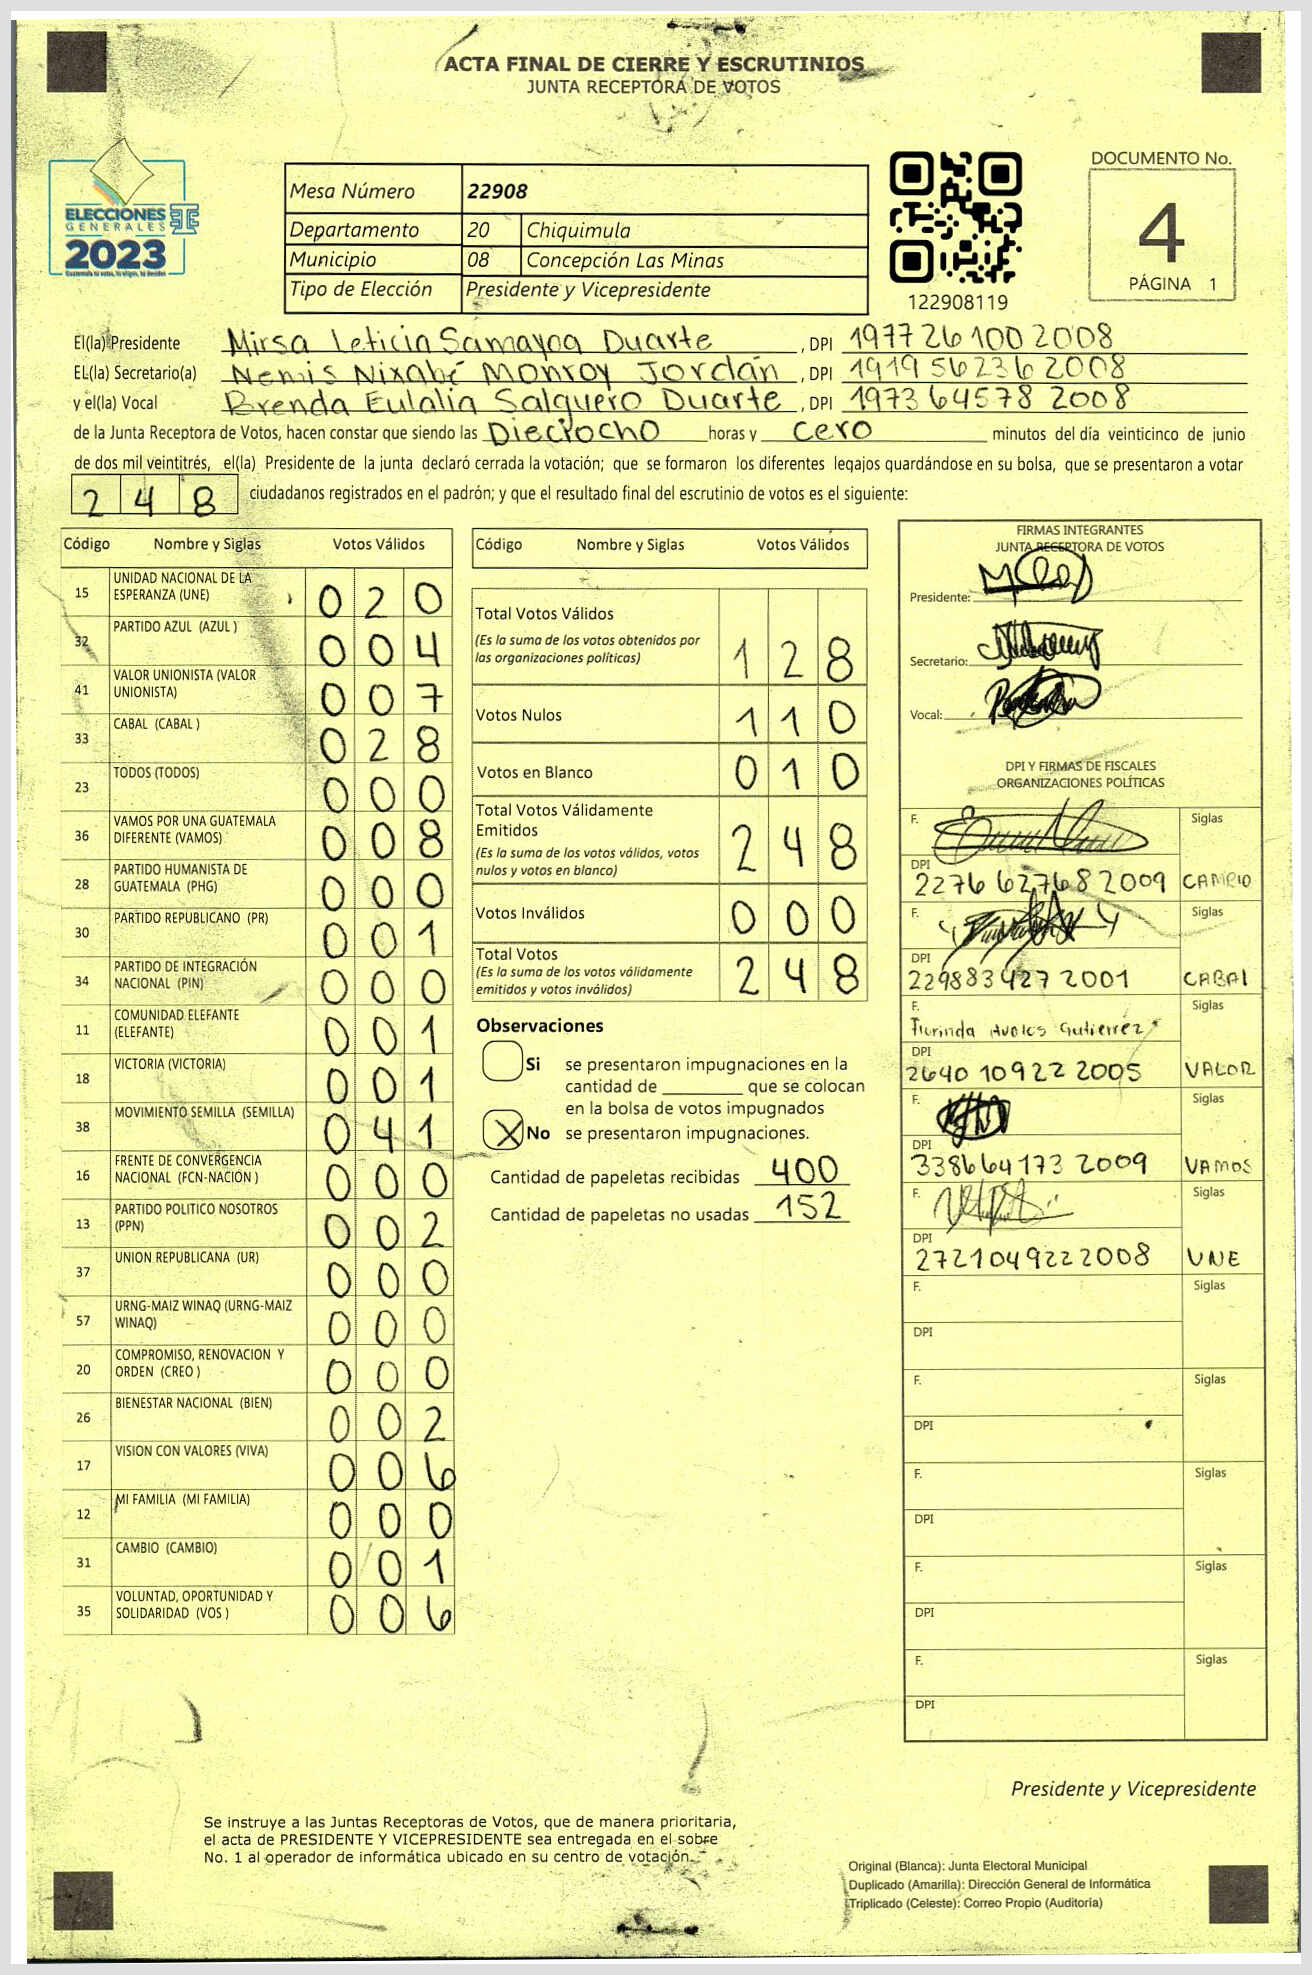 ACTA FINAL DE CIERRE Y ESCRUTINIOS
JUNTA RECEPTORA DE VOTOS
ELECCIONES
GENERALES
2023
Mesa Número 22908
Departamento 20 Chiquimula
Municipio 08 Concepción Las Minas
Tipo de Elección Presidente y Vicepresidente
122908119
DOCUMENTO No.
4
PÁGINA 1
El(la) Presidente Mirsa Leticia Samayoa Duarte, DPI 1977 26100 2008
EL(la) Secretario(a) Nemis Nixabé Monroy Jordán, DPI 1919 56236 2008
y el(la) Vocal Brenda Eulalia Salguero Duarte, DPI 1973 64578 2008
de la Junta Receptora de Votos, hacen constar que siendo las Dieciocho horas y cero minutos del día veinticinco de junio
de dos mil veintitrés, el(la) Presidente de la junta declaró cerrada la votación; que se formaron los diferentes legajos guardándose en su bolsa, que se presentaron a votar
248 ciudadanos registrados en el padrón; y que el resultado final del escrutinio de votos es el siguiente:
Código Nombre y Siglas Votos Válidos
15 UNIDAD NACIONAL DE LA ESPERANZA (UNE) 020
32 PARTIDO AZUL (AZUL ) 004
41 VALOR UNIONISTA (VALOR UNIONISTA) 007
33 CABAL (CABAL ) 028
23 TODOS (TODOS) 000
36 VAMOS POR UNA GUATEMALA DIFERENTE (VAMOS) 008
28 PARTIDO HUMANISTA DE GUATEMALA (PHG) 000
30 PARTIDO REPUBLICANO (PR) 001
34 PARTIDO DE INTEGRACIÓN NACIONAL (PIN) 000
11 COMUNIDAD ELEFANTE (ELEFANTE) 001
18 VICTORIA (VICTORIA) 001
38 MOVIMIENTO SEMILLA (SEMILLA) 041
16 FRENTE DE CONVERGENCIA NACIONAL (FCN-NACION ) 000
13 PARTIDO POLITICO NOSOTROS (PPN) 002
37 UNION REPUBLICANA (UR) 000
57 URNG-MAIZ WINAQ (URNG-MAIZ WINAQ) 000
20 COMPROMISO, RENOVACION Y ORDEN (CREO ) 000
26 BIENESTAR NACIONAL (BIEN) 002
17 VISION CON VALORES (VIVA) 006
12 MI FAMILIA (MI FAMILIA) 000
31 CAMBIO (CAMBIO) 001
35 VOLUNTAD, OPORTUNIDAD Y SOLIDARIDAD (VOS ) 006
Código Nombre y Siglas Votos Válidos
Total Votos Válidos 128
(Es la suma de los votos obtenidos por
las organizaciones políticas)
Votos Nulos 110
Votos en Blanco 010
Total Votos Válidamente
Emitidos 248
(Es la suma de los votos válidos, votos
nulos y votos en blanco)
Votos Inválidos 000
Total Votos 248
(Es la suma de los votos válidamente
emitidos y votos inválidos)
Observaciones
Si se presentaron impugnaciones en la
cantidad de ________ que se colocan
en la bolsa de votos impugnados
X No se presentaron impugnaciones.
Cantidad de papeletas recibidas 400
Cantidad de papeletas no usadas 152
FIRMAS INTEGRANTES
JUNTA RECEPTORA DE VOTOS
Presidente:
Secretario:
Vocal:
DPI Y FIRMAS DE FISCALES
ORGANIZACIONES POLÍTICAS
F. Siglas
DPI
2276 62768 2009 CAMBIO
F. Siglas
DPI
229883427 2001 CABAL
F. Siglas
Avalos Gutierrez
DPI
2640 10922 2005 VALOR
F. Siglas
DPI
338664173 2009 VAMOS
F. Siglas
DPI
2721049222008 UNE
F. Siglas
DPI
F. Siglas
DPI
F. Siglas
DPI
F. Siglas
DPI
F. Siglas
DPI
Presidente y Vicepresidente
Se instruye a las Juntas Receptoras de Votos, que de manera prioritaria,
el acta de PRESIDENTE Y VICEPRESIDENTE sea entregada en el sobre
No. 1 al operador de informática ubicado en su centro de votación.
Original (Blanca): Junta Electoral Municipal
Duplicado (Amarilla): Dirección General de Informática
Triplicado (Celeste): Correo Propio (Auditoría)